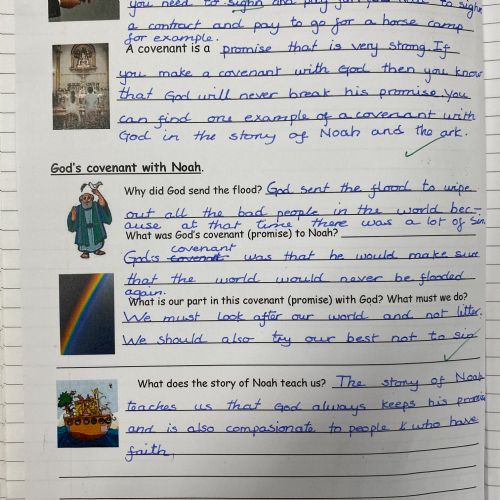 you need to sighn and pay for you have to sighn
a contract and pay to go for a horse camp
for example.
A covenant is a promise that is very strong. If
you make a covenant with God then you know
that God will never break his promise. You
can find one example of a covenant with
God in the story of Noah and the ark.
God's covenant with Noah.
Why did God send the flood? God sent the flood to wipe
out all the bad people in the world bec-
ause at that time there was a lot of sin.
What was God's covenant (promise) to Noah?
covenant
God's was that he would make sure
that the world would never be flooded
again.
What is our part in this covenant (promise) with God? What must we do?
We must look after our world and not litter.
We should also try our best not to sin
What does the story of Noah teach us? The story of Noah
teaches us that God always keeps his promise
and is also compasionate to people who have
faith.